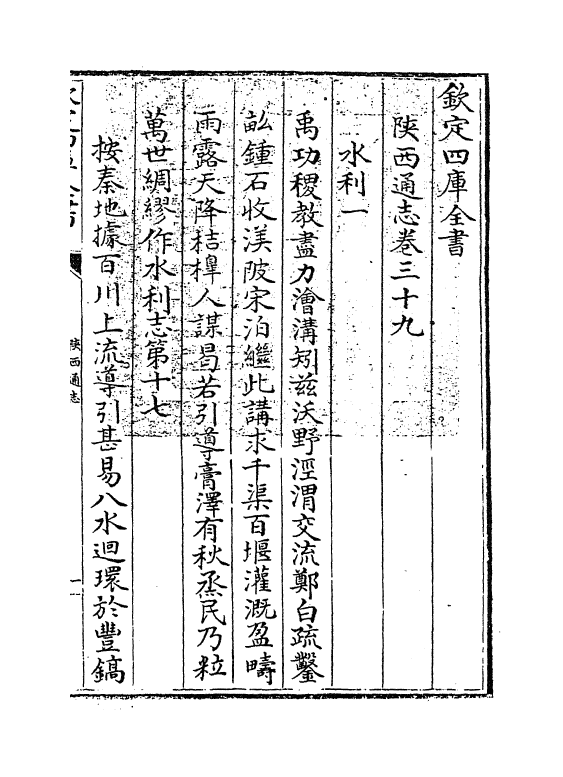 欽定四庫全書
陝西通志卷三十九
水利一
禹功稷教盡力澮溝矧茲沃野涇渭交流鄭白疏鑿
畆鍾石收渼陂宋泊繼此講求千渠百堰灌溉盈疇
雨露天降桔槹人謀曷若引導膏澤有秋烝民乃粒
萬世綢繆作水利志第十七
按秦地據百川上流導引甚易八水迴環於豐鎬
陝西通志
一